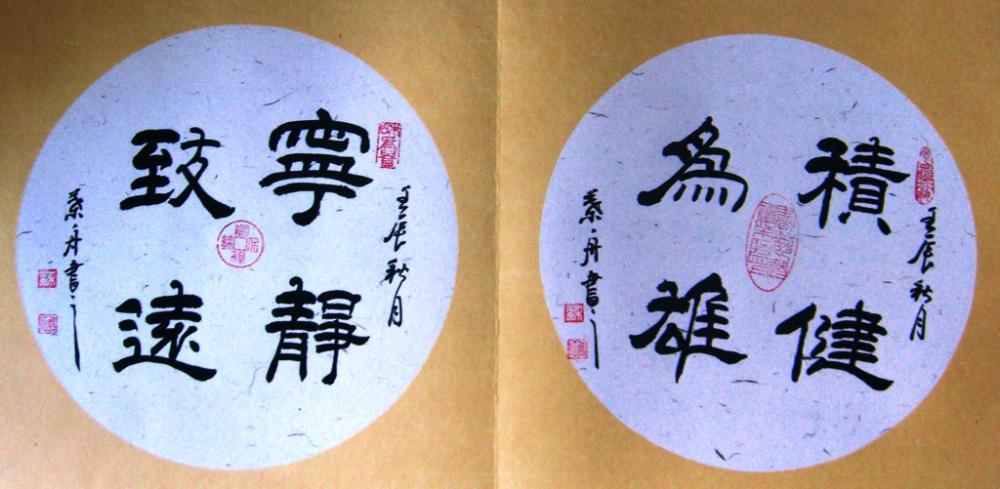 積健
為雄
壬辰秋月
舟書
寧靜
致遠
壬辰秋月
舟書